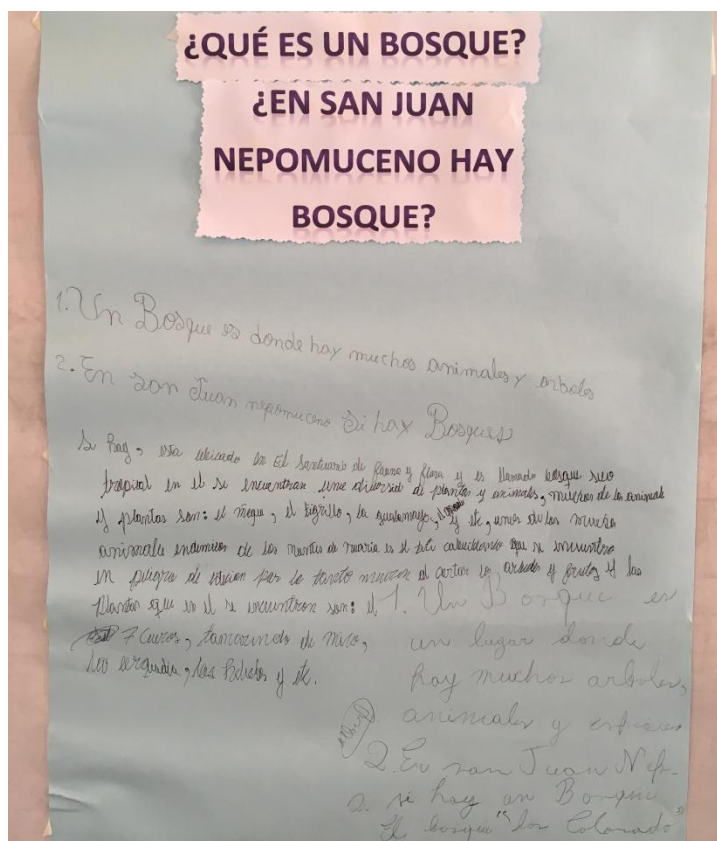 ¿QUÉ ES UN BOSQUE?
¿EN SAN JUAN
NEPOMUCENO HAY
BOSQUE?
1. Un Bosque es donde hay muchos animales y arboles
2. En san Juan nepomuceno Si hay Bosques
Si hay, esta ubicado en El Santuario de fauna y flora y es llamado bosque seco
tropical en el se encuentran una diversid de plantas y animales, muchos de los animale
y plantas son: el ñeque, el tigrillo, la guatamaya, y etc, unos de los mucho
animale endemicos de los montes de maria es el titi cabeciblanco que se encuentra
en peligro de por lo tanto al cortar los arboles y frutos y las
Plantas que en el se encuentran son: el
7 Cueros, tamarindo de mico,
y etc.
1. Un Bosque es
un lugar donde
hay muchos arboles,
animales y
2. En san Juan Nep.
si hay un Bosque
El bosque "los Colorado"